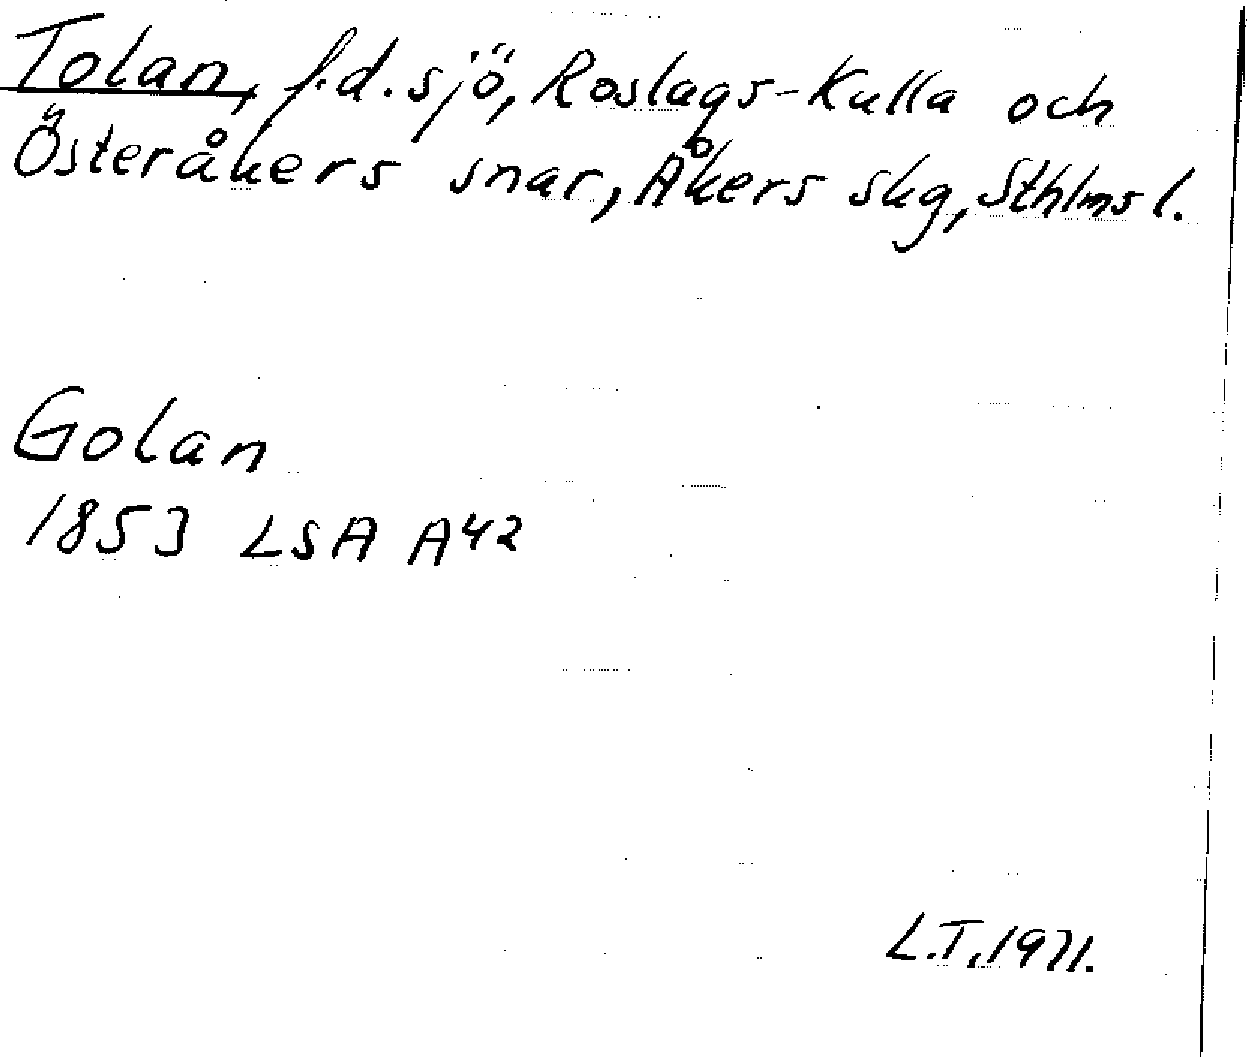 Tolan, f.d. sjö, Roslags-Kulla och
Österåkers snar, Åkers skg, Sthlms l.
Golan
1853 LSA A42
L.T. 1971.